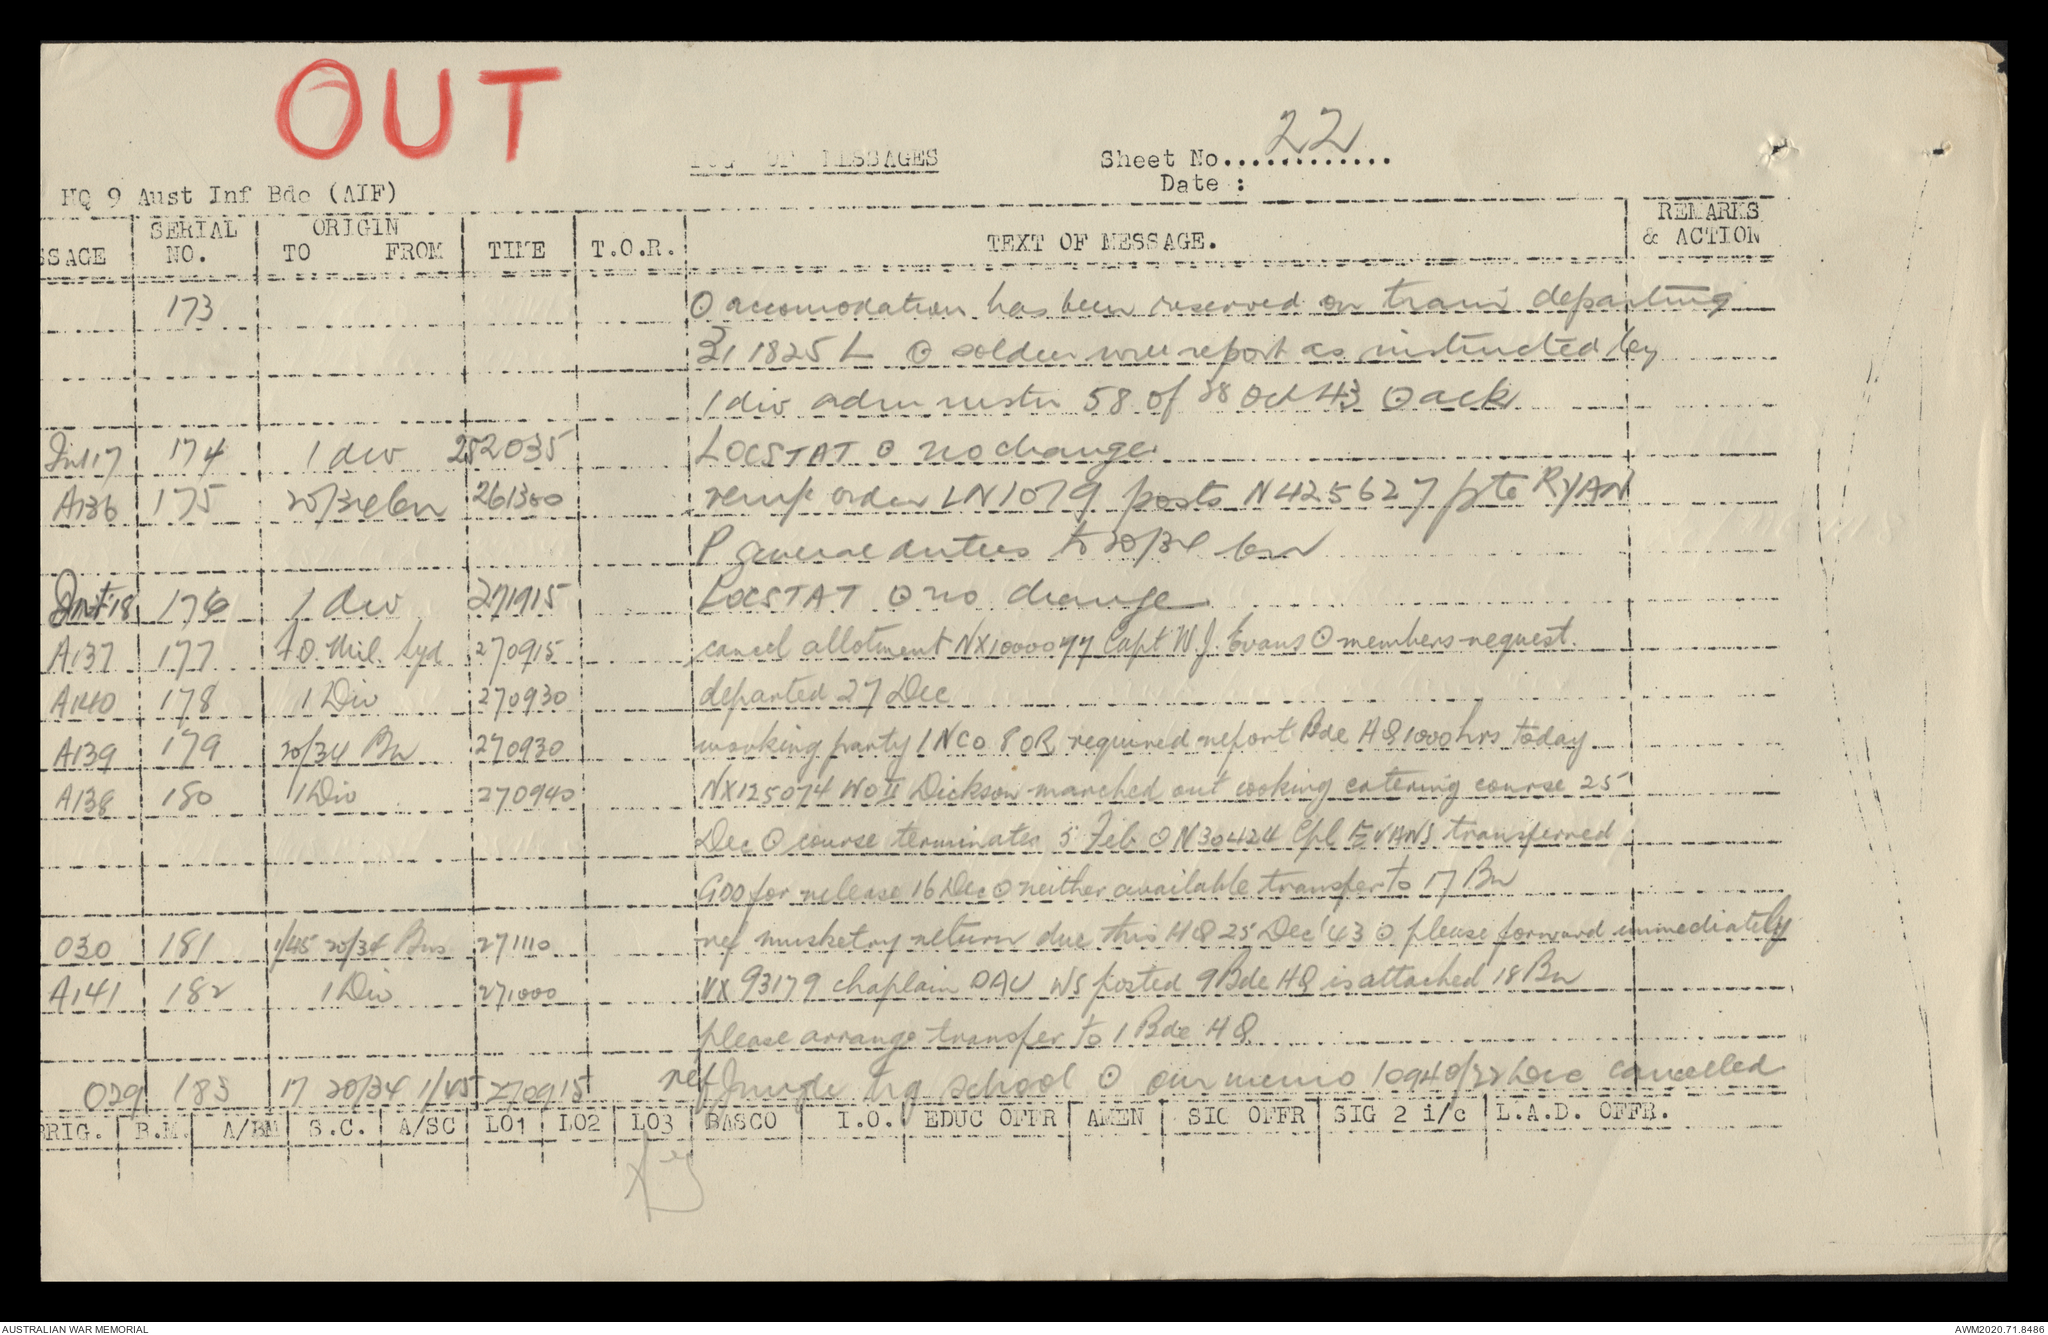 OUT
LOG OF MESSAGES
Sheet No............. 22
Date :
HQ 9 Aust Inf Bde (AIF)
SSAGE SERIAL NO. ORIGIN TO FROM TIME T.O.R. TEXT OF MESSAGE. REMARKS & ACTION
173 ʘ accomodation has been reserved on train departing
31 1825 L ʘ soldier will report as instructed by
1 div adm instn 58 of 28 Oct 43 ʘ ack
Int17 174 1 div 252035 LOCSTAT ʘ no change
A136 175 20/34 bn 261300 order LN1079 posts N425627 pte RYAN
P general duties to 20/34 bn
Int 18 176 1 div 271915 LOCSTAT ʘ no change
A137 177 Mil. Syd 270915 cancel allotment Capt W.J. Evans ʘ members request.
A140 178 1 Div 270930 departed 27 Dec
A139 179 20/34 Bn 270930 working party 1 NCO 8 OR required report Bde HQ 1000 hrs today
A138 180 1 Div 270940 NX125074 WO II Dickson marched out cooking catering course 25
Dec ʘ course terminates 5 Feb ʘ N30424 Cpl EVANS transferred
GDD for release 16 Dec ʘ neither available transfer to 17 Bn
030 181 1/45 20/34 Bns 271110 ref musketry return due this HQ 25 Dec '43 ʘ please forward immediately
A141 182 1 Div 271000 VX 93179 chaplain WS posted 9 Bde HQ is attached 18 Bn
please arrange transfer to 1 Bde HQ
029 183 17 20/34 1/45 270915 ref Jungle trg school ʘ our memo 10940/22 Dec cancelled
RIG. B.M. A/BM S.C. A/SC LO1 LO2 LO3 BASCO I.O. EDUC OFFR AMEN SIG OFFR SIG 2 i/c L.A.D. OFFR.
AUSTRALIAN WAR MEMORIAL
AWM2020.71.8486